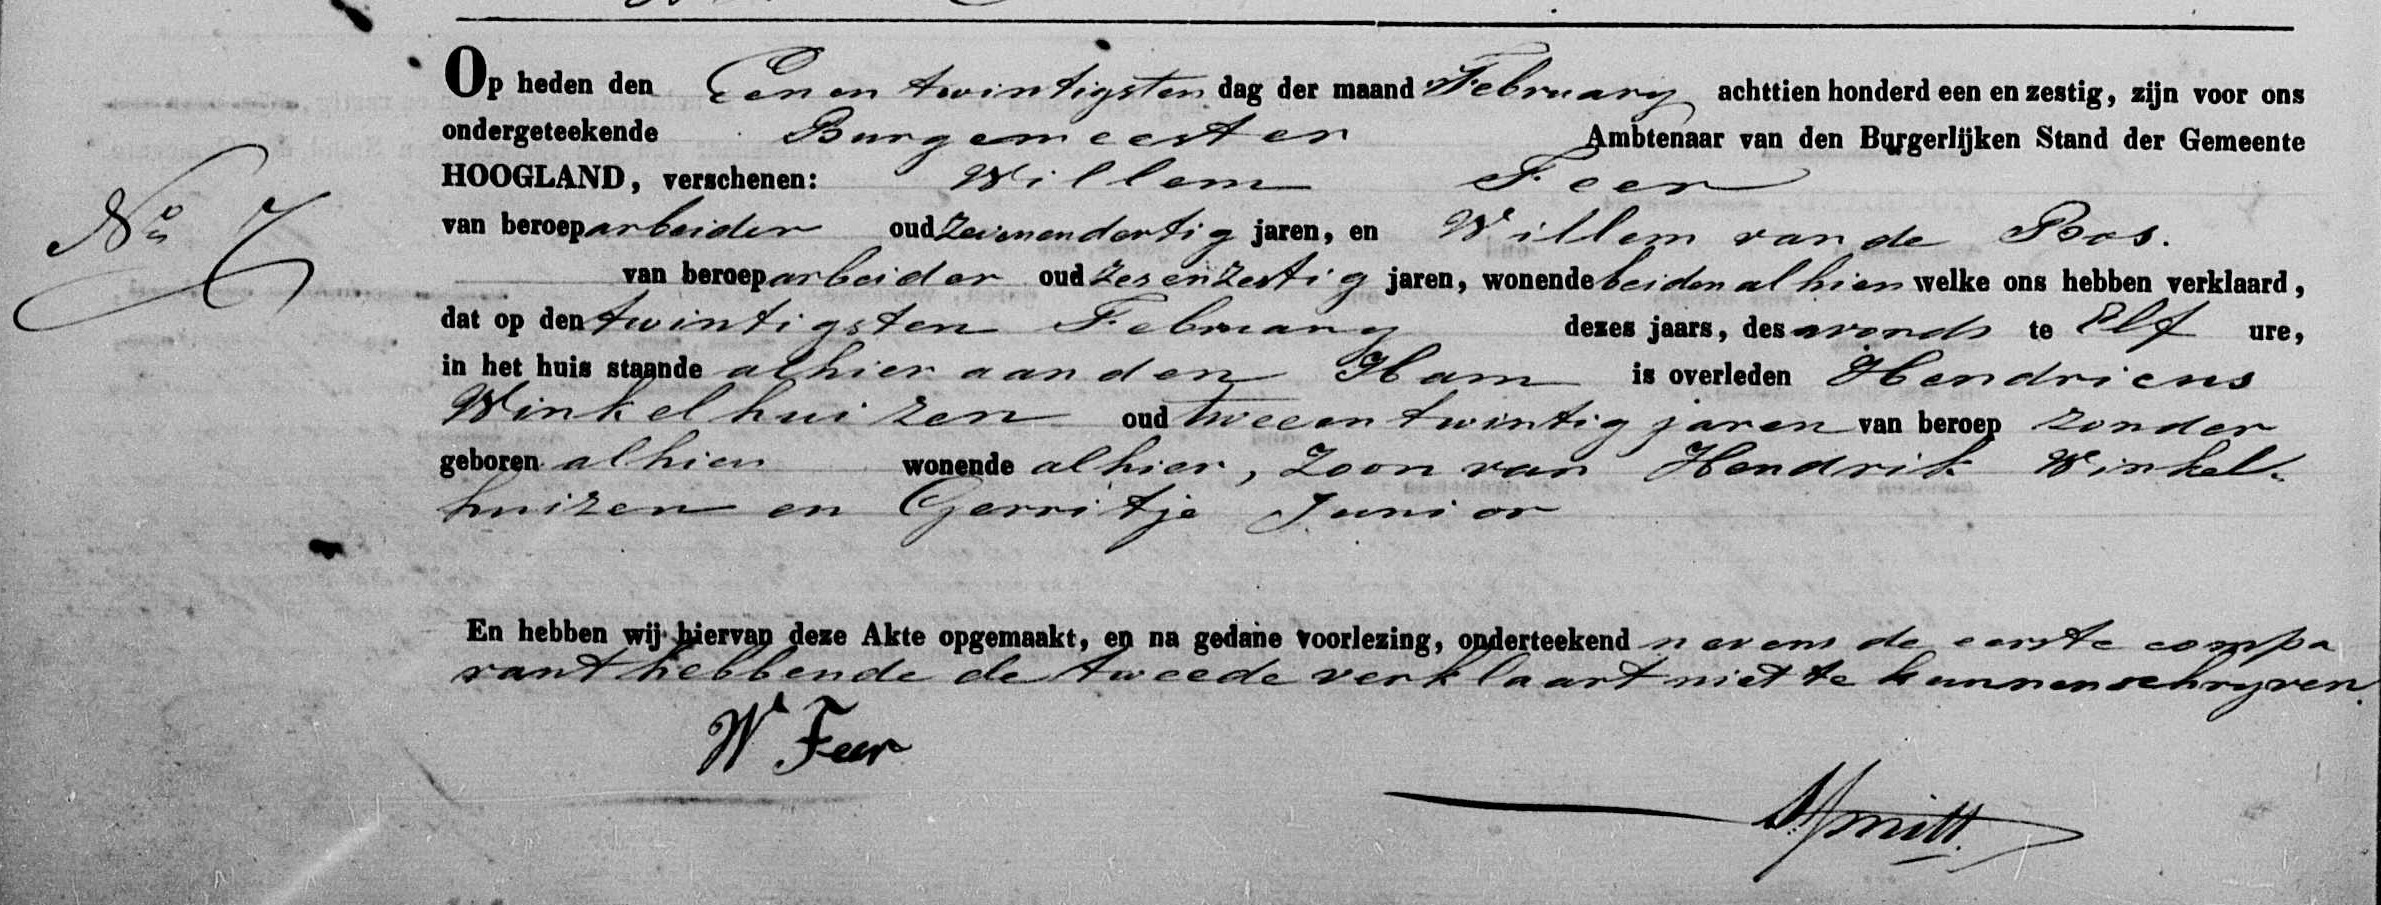 Op heden den Een en twintigsten dag der maand February achttien honderd een en zestig, zijn voor ons
ondergeteekende Burgemeester Ambtenaar van den Burgerlijken Stand der Gemeente
HOOGLAND, verschenen: Willem Feer
No 7
van beroep arbeider oud zevenendertig jaren, en Willem van de Bos.
van beroep arbeider oud zesenzestig jaren, wonende beiden alhier welke ons hebben verklaard,
dat op den twintigsten February dezes jaars, des avonds te Elf ure,
in het huis staande alhier aan den Ham is overleden Hendricus
Winkelhuizen oud twee en twintig jaren van beroep zonder
geboren alhier wonende alhier, Zoon van Hendrik Winkel-
huizen en Gerritje Junior
En hebben wij hiervan deze Akte opgemaakt, en na gedane voorlezing, onderteekend nevens de eerste compa
rant hebbende de tweede verklaart niet te kunnen schryven.
W Feer
Smitt.